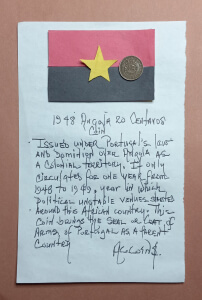 1948 Angola 20 Centavos
Coin
Issued under Portugal's law
and Dominion over Angola as
a colonial territory. It only
circulates for one year from
1948 to 1949, year in which
political unstable venues started
around this African country. This
coin brings the seal or coat of
Arms of Portugal as a parent
country